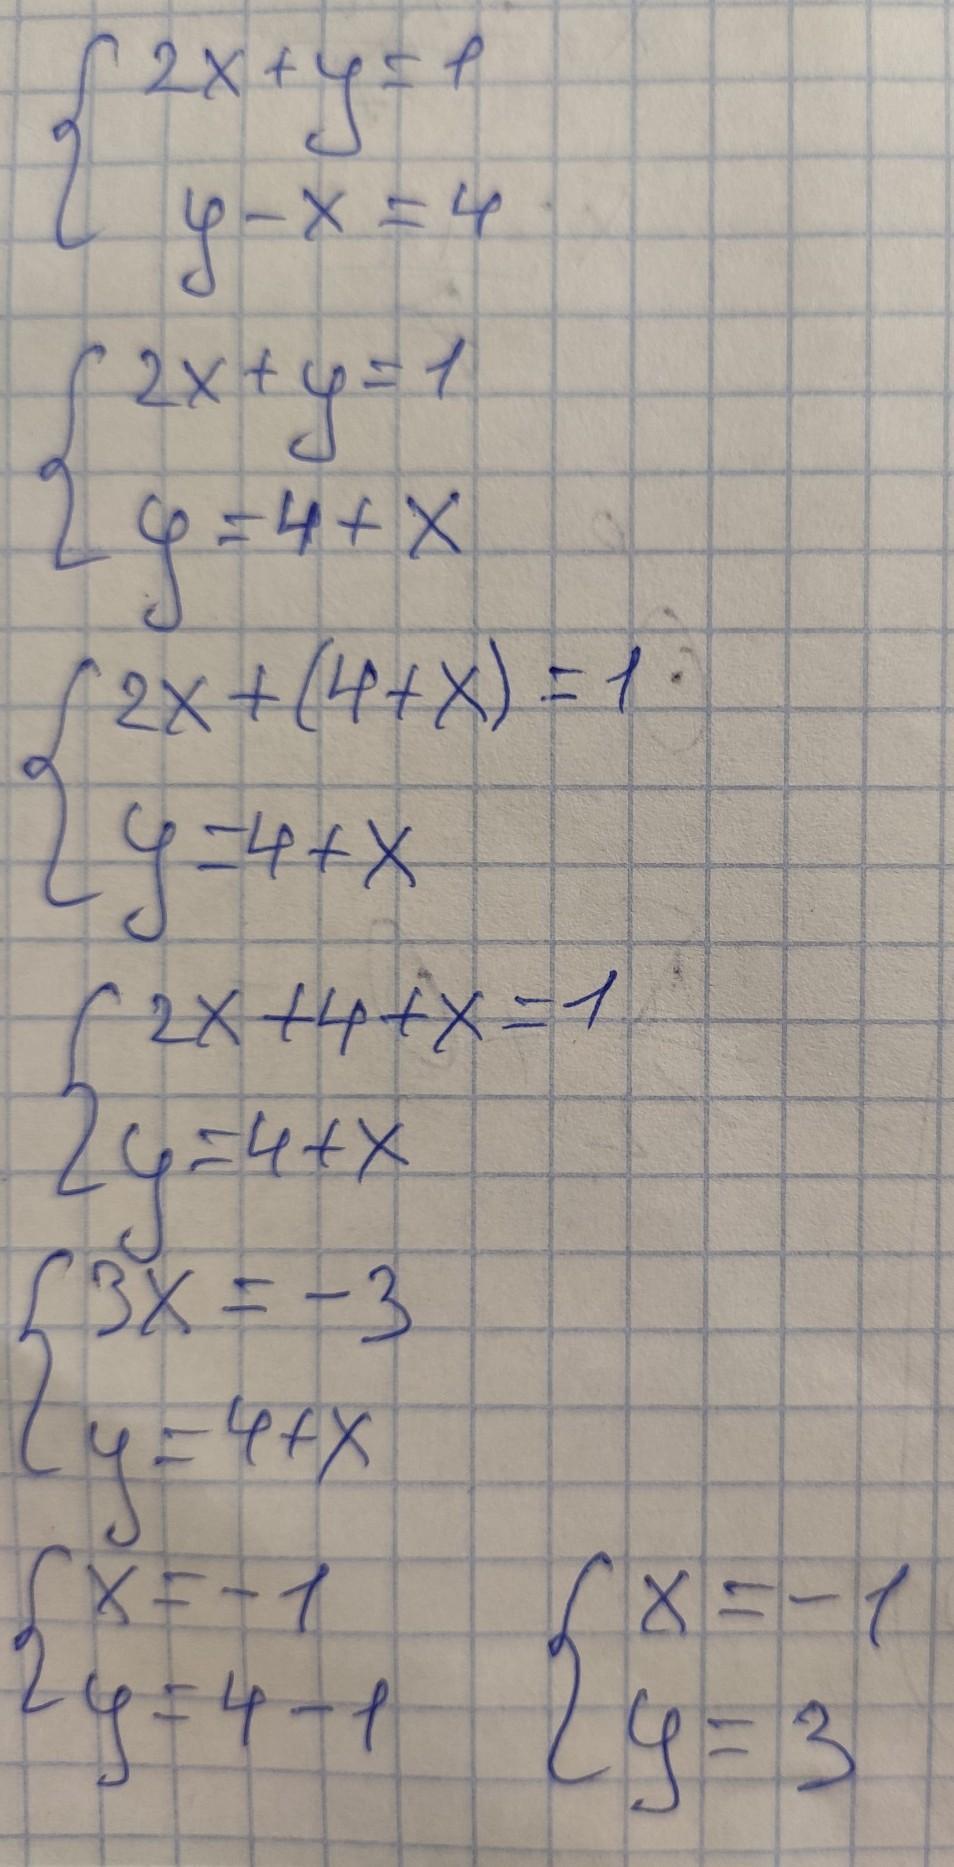 2x+y=1
y-x=4
2x+y=1
y=4+x
2x+(4+x)=1
y=4+x
2x+4+x=1
y=4+x
3x=-3
y=4+x
x=-1
y=4-1
x=-1
y=3